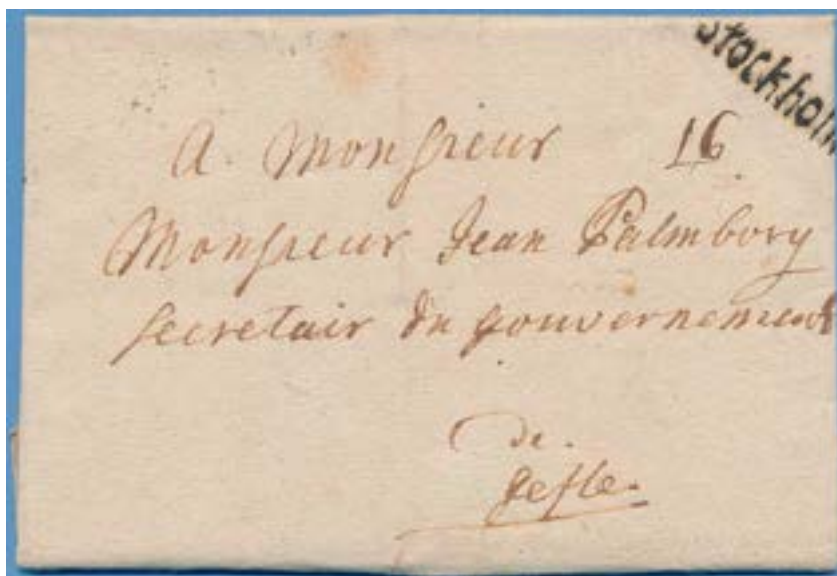 Stockholm
A Monsieur 16
Monsieur Jean Palmborg
secretair du gouvernement
de
Gefle.